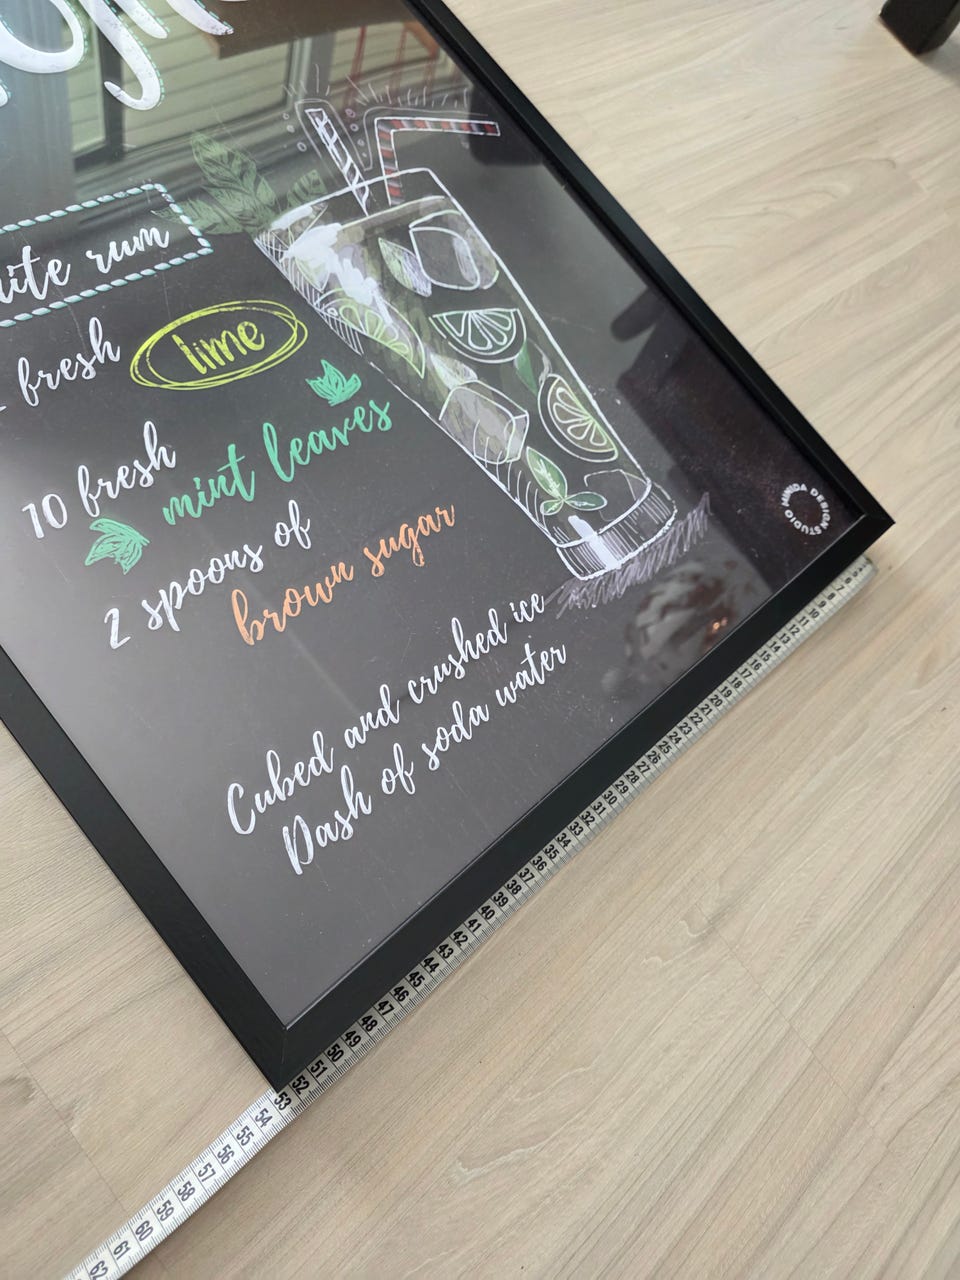 rum
fresh
lime
10 fresh
mint leaves
2 spoons of
brown sugar
Cubed and crushed ice
Dash of soda water
MINIDA DESIGN STUDIO
5 6 7 8 9 10 11 12 13 14 15 16 17 18 19 20 21 22 23 24 25 26 27 28 29 30 31 32 33 34 35 36 37 38 39 40 41 42 43 44 45 46 47 48 49 50 51 52 53 54 55 56 57 58 59 60 61 62